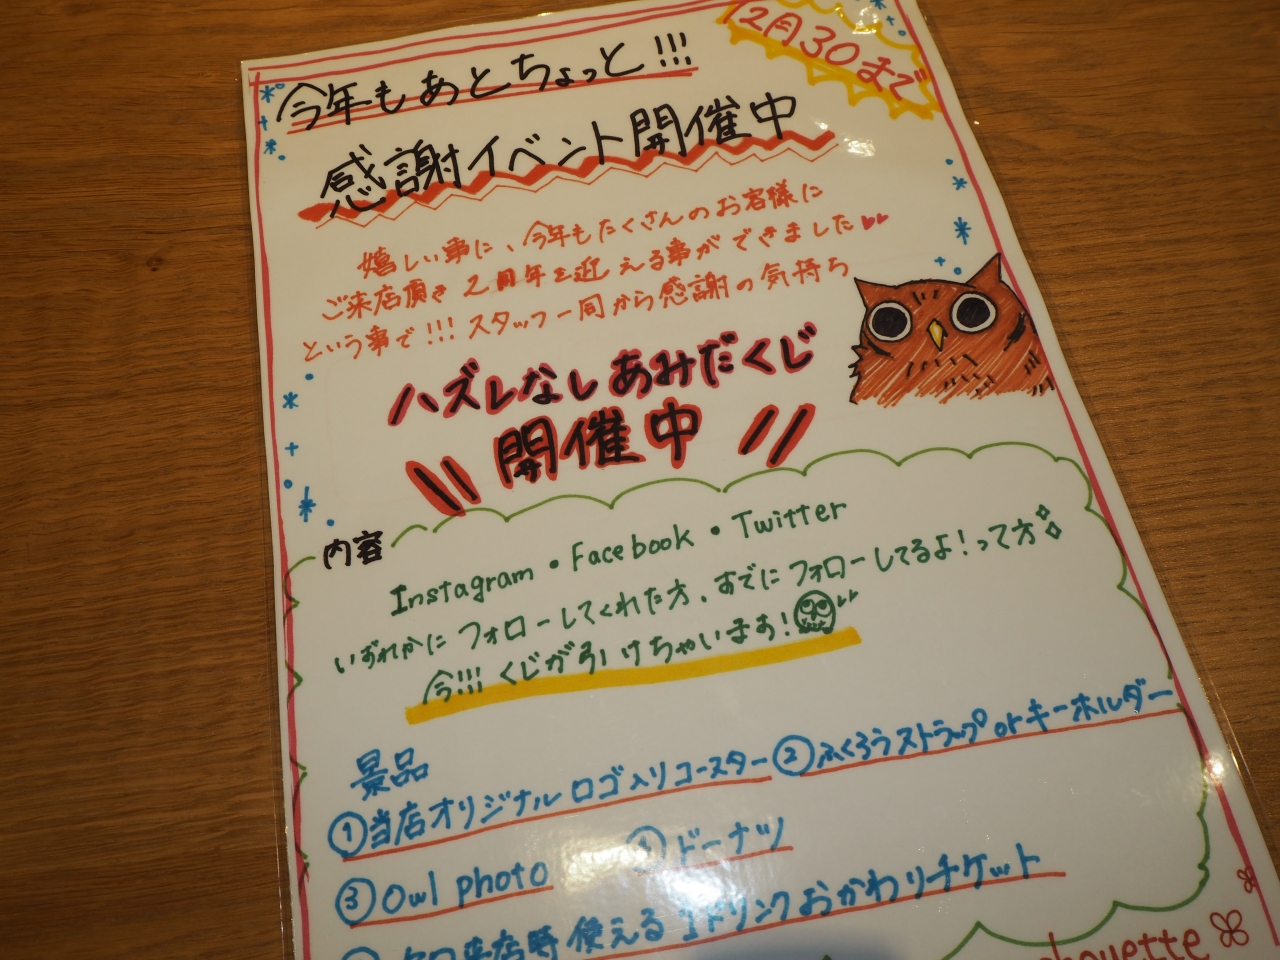 12月30まで
今年もあとちょっと!!!
感謝イベント開催中
嬉しい事に、今年もたくさんのお客様に
ご来店頂き 2周年を迎える事ができました
という事で!!! スタッフ一同から感謝の気持ち
ハズレなしあみだくじ
開催中
内容
Instagram・Facebook・Twitter
いずれかに フォローしてくれた方、すでにフォローしてるよ!って方
今!!! くじが引けちゃいます!
景品
①当店オリジナルロゴ入りコースター ②ふくろうストラップorキーホルダー
③Owl photo ④ドーナツ
来店時使える1ドリンクおかわりチケット
chouette